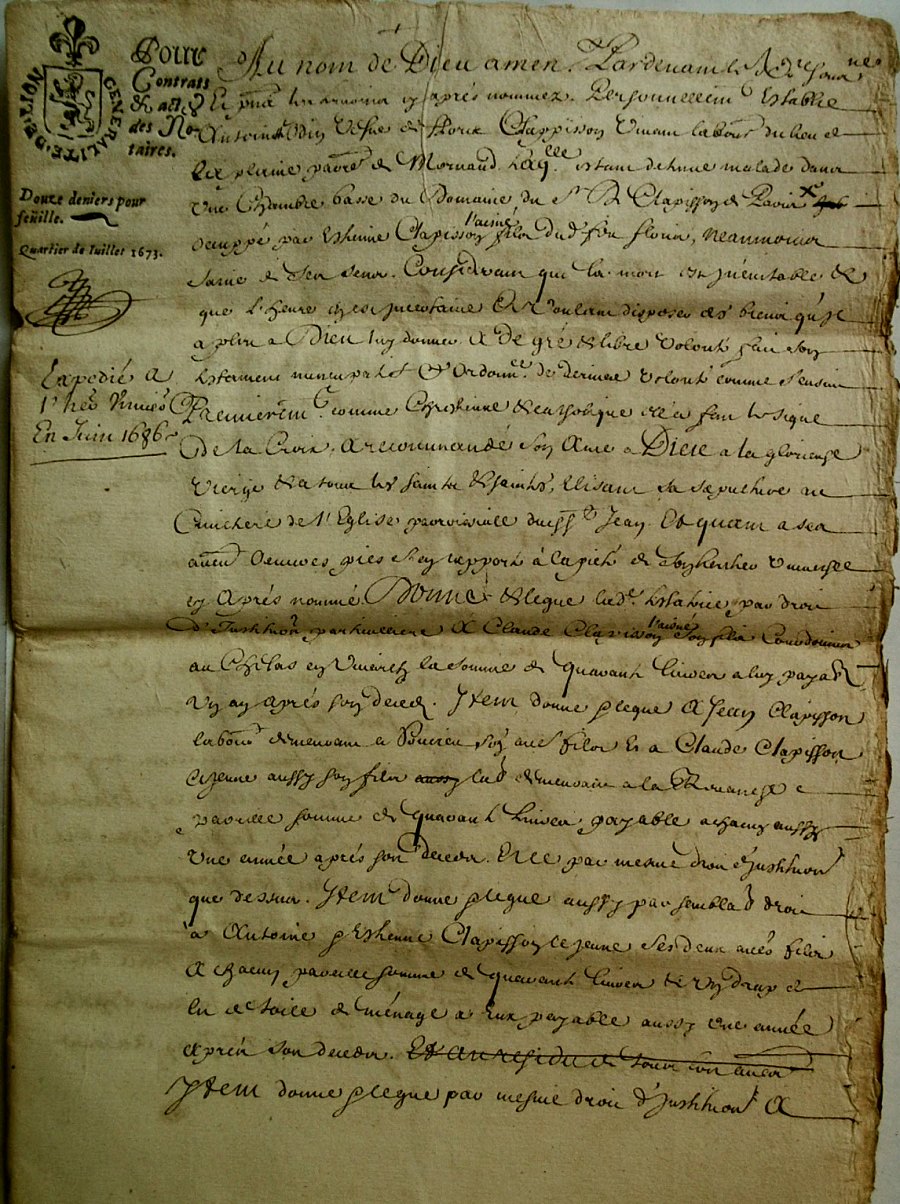 GENERALITE · DE · LION
Pour
Contrats
& act. &
des No-
taires.
Douze deniers pour
feüille.
Quartier de Iuillet 1673.
Expedié a
En Juin 1686
Au nom de Dieu amen. Pardevant le No.re
Et ap̃rés nommez. Personnellem.t Establie
Antoinette vefve de Clappisson vivant labour.r du lieu de
de Mornand. Laq.lle estant detenue malade dans
Une Chambre basse du Domaine du S.r Clapisson de
occuppé par Estienne Clapisson l'aisné filz dud. feu neanmoins
saine de ses sens. Considerant que la mort est inevitable &
que l'heure est incertaine Et voulant disposer des biens qu'il
a plu a Dieu luy donner A de gré & libre volonté fait son
testament nuncupatif & Ordon.ce de derniere volonté comme s'ensuit
Premierem.t comme Chrestienne & catholique elle a fait le signe
De la Croix, a recommandé son Ame a Dieu a la glorieuse
Vierge & a tous les saints & saintes, Elisant sa sepulture au
Cimetiere de l'Eglise parroissiale Jean. Et quant a ses
oeuvres pies s'en rapporte à la pieté de son heritier universel
cy Aprés nommé. Donne & legue lad. testatrice par droit
d'Institution particulliere A Claude Clapisson l'aisné son filz
au la somme de quarante livres a luy payable
Un an aprés son deceds. Item donne & legue A Jean Clapisson
lab.r demeurant a son autre filz Et a Claude Clapisson
le jeune aussy son filz aussy demeurant a la
pareille somme de quarante livres payable a chacun aussy
Une année aprés son deceds. Et ce par mesme droit d'Institution
que dessus. Item donne & legue aussy par semblable droit
à Antoine & Estienne Clapisson le jeune ses deux autres filz
A chacun pareille somme de quarante livres & un drap de
lit de toile de ménage a Eux payable aussy une année
aprés son deceds. Et au residu de tous
Item donne & legue par mesme droit d'Institution A